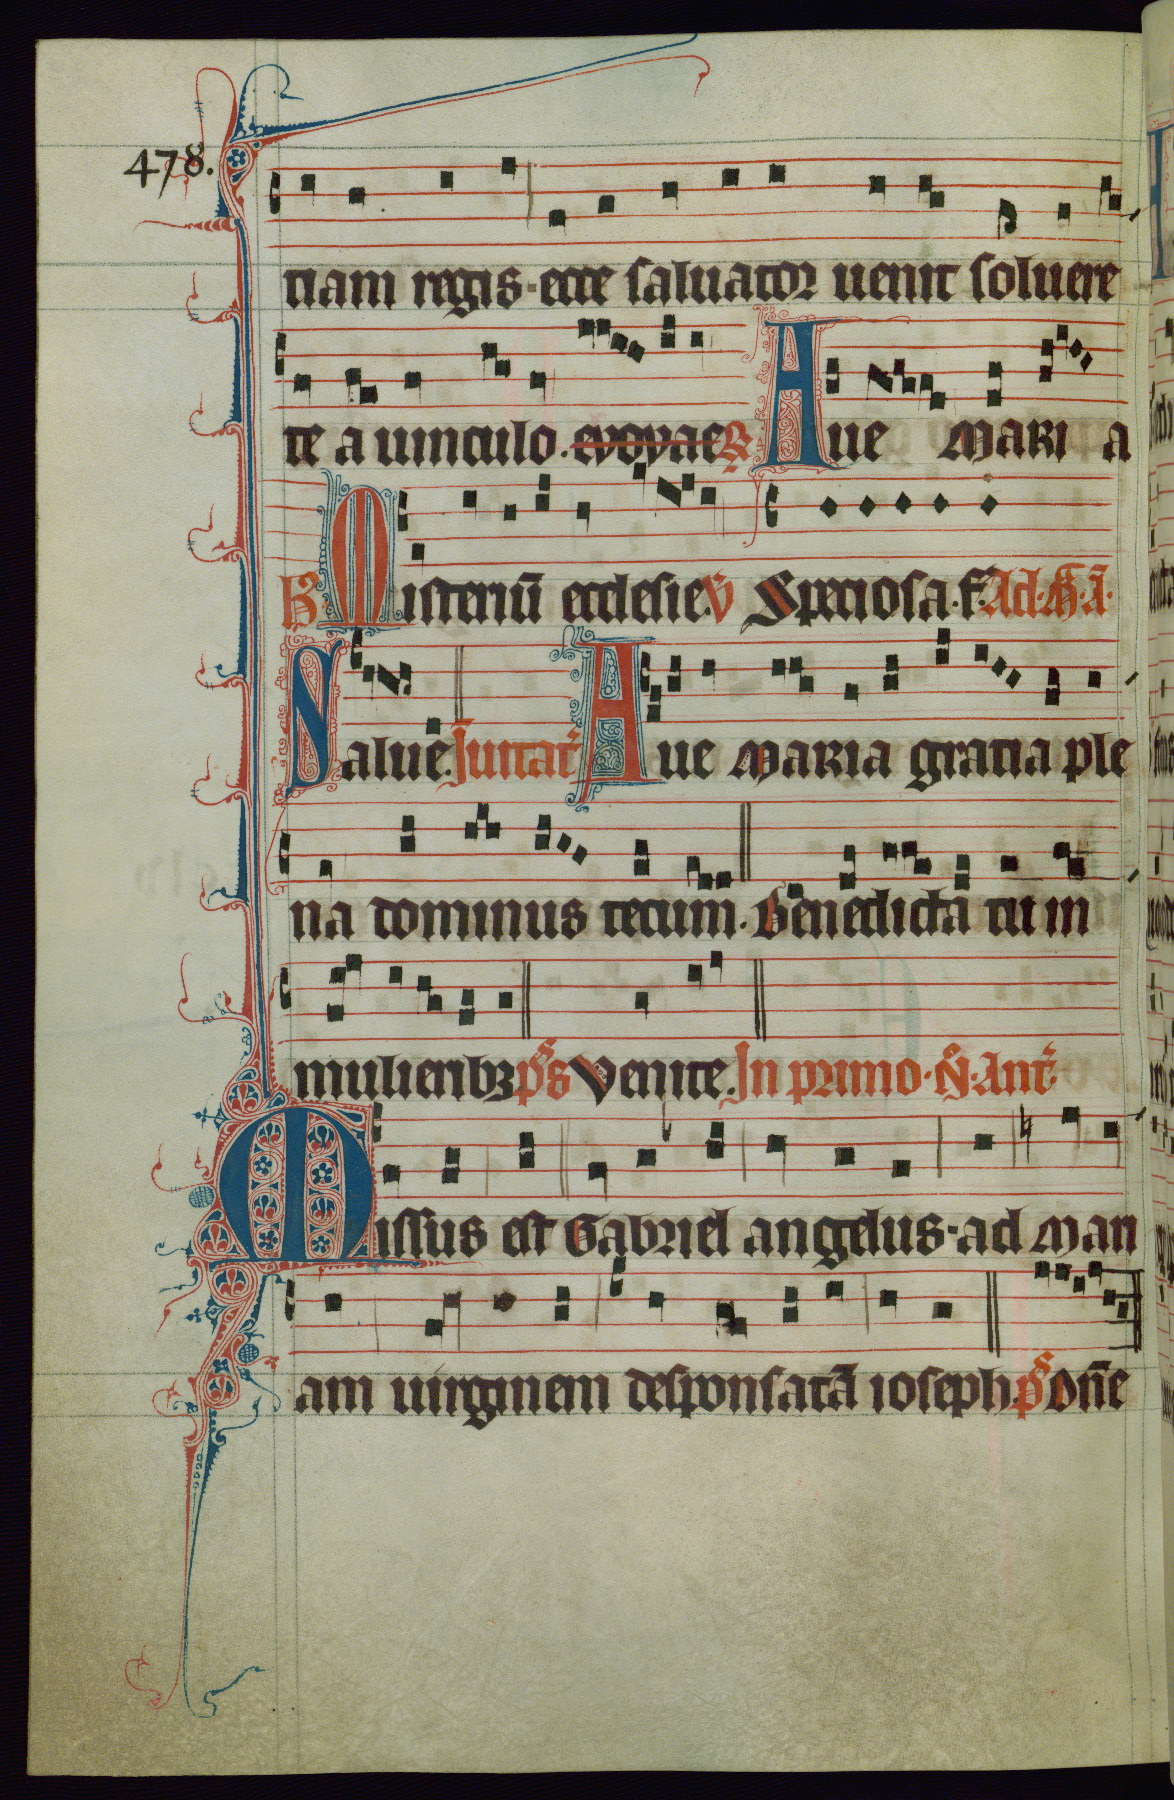 478.
tiam regis · ecce saluator uenit soluere
te a uinculo. euouae R Aue Maria
H Misteriū ecclesie. V Speciosa. f. Ad. M. ā.
Salue. Inuitat' Aue Maria gratia ple
na dominus tecum. Benedicta tu in
mulieribȝ ps Venite. In primo. N. Ant'
Missus est Gabriel angelus · ad Mari
am uirginem desponsatā ioseph. ps Dn̄e